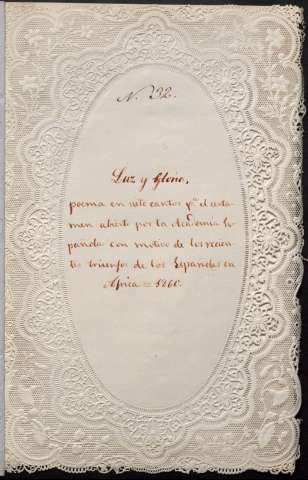 N. 32.
Luz y Gloria,
poema en siete cantos pª el certa-
men abierto por la Academia Es-
pañola con motivo de los recien-
tes triunfos de los Españoles en
Africa = 1860.